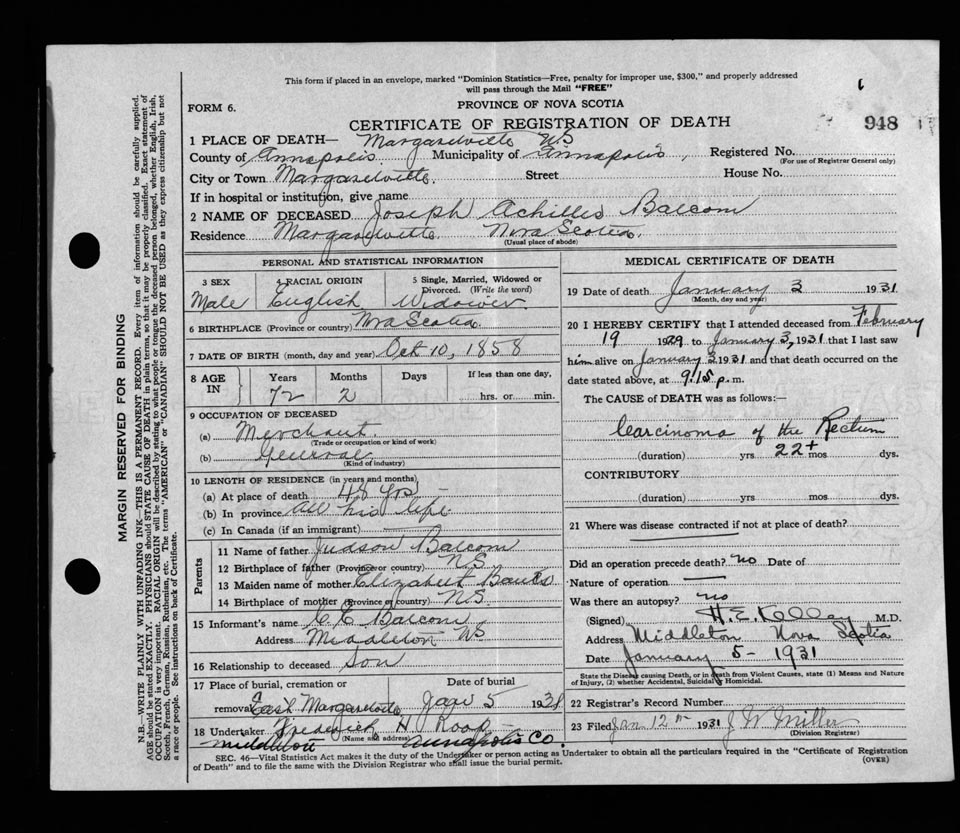 This form if placed in an envelope, marked "Dominion Statistics—Free, penalty for improper use, $300," and properly addressed
will pass through the Mail "FREE"
FORM 6.
PROVINCE OF NOVA SCOTIA
CERTIFICATE OF REGISTRATION OF DEATH
948
1 PLACE OF DEATH— Margaretville N.S
County of Annapolis Municipality of Annapolis, Registered No.
(For use of Registrar General only)
City or Town Margaretville. Street House No.
If in hospital or institution, give name
2 NAME OF DECEASED Joseph Achilles Balcom
Residence Margaretville Nova Scotia.
(Usual place of abode)
PERSONAL AND STATISTICAL INFORMATION
3 SEX
Male
4 RACIAL ORIGIN
English
5 Single, Married, Widowed or
Divorced. (Write the word)
Widower
6 BIRTHPLACE (Province or country) Nova Scotia.
7 DATE OF BIRTH (month, day and year) Oct 10, 1858
8 AGE
IN
Years
72
Months
2
Days
If less than one day,
hrs. or min.
9 OCCUPATION OF DECEASED
(a) Merchant.
(Trade or occupation or kind of work)
(b) General
(Kind of industry)
10 LENGTH OF RESIDENCE (in years and months)
(a) At place of death 48 yrs
(b) In province all his life
(c) In Canada (if an immigrant)
Parents
11 Name of father Judson Balcom
12 Birthplace of father (Province or country) N.S.
13 Maiden name of mother Elizabeth Banks
14 Birthplace of mother (Province or country) N.S.
15 Informant's name Balcom
Address Middleton NS
16 Relationship to deceased Son
17 Place of burial, cremation or
removal East Margaretville
Date of burial
Jan 5 1931
18 Undertaker Frederick H Roop
(Name and address)
Middleton Annapolis Co.
MEDICAL CERTIFICATE OF DEATH
19 Date of death January 3 1931
(Month, day and year)
20 I HEREBY CERTIFY that I attended deceased from February
19 1929 to January 3, 1931 that I last saw
him alive on January 3 1931 and that death occurred on the
date stated above, at 9.15 p.m.
The CAUSE of DEATH was as follows:—
Carcinoma of the Rectum
(duration) yrs 22+ mos dys.
CONTRIBUTORY
(duration) yrs mos dys.
21 Where was disease contracted if not at place of death?
Did an operation precede death? no Date of
Nature of operation
Was there an autopsy? no
(Signed) H.E. M.D.
Address Middleton Nova Scotia
Date January 5- 1931
State the Disease causing Death, or in death from Violent Causes, state (1) Means and
Nature of Injury, (2) whether Accidental, Suicidal or Homicidal.
22 Registrar's Record Number
23 Filed Jan 12th 1931 J W Miller
(Division Registrar)
SEC. 46—Vital Statistics Act makes it the duty of the Undertaker or person acting as Undertaker to obtain all the particulars required in the "Certificate of Registration
of Death" and to file the same with the Division Registrar who shall issue the burial permit.
(OVER)
MARGIN RESERVED FOR BINDING
N.B.—WRITE PLAINLY WITH UNFADING INK—THIS IS A PERMANENT RECORD. Every item of information should be carefully supplied.
AGE should be stated EXACTLY. PHYSICIANS should STATE CAUSE OF DEATH in plain terms, so that it may be properly classified. Exact statement of
OCCUPATION is very important. RACIAL ORIGIN will be described by stating to what people or tongue the deceased person belonged, whether English, Irish,
Scotch, French, German, Russian, Ruthenian, etc. The terms "AMERICAN" or "CANADIAN" SHOULD NOT BE USED as they express citizenship but not
a race or people. See instructions on back of Certificate.